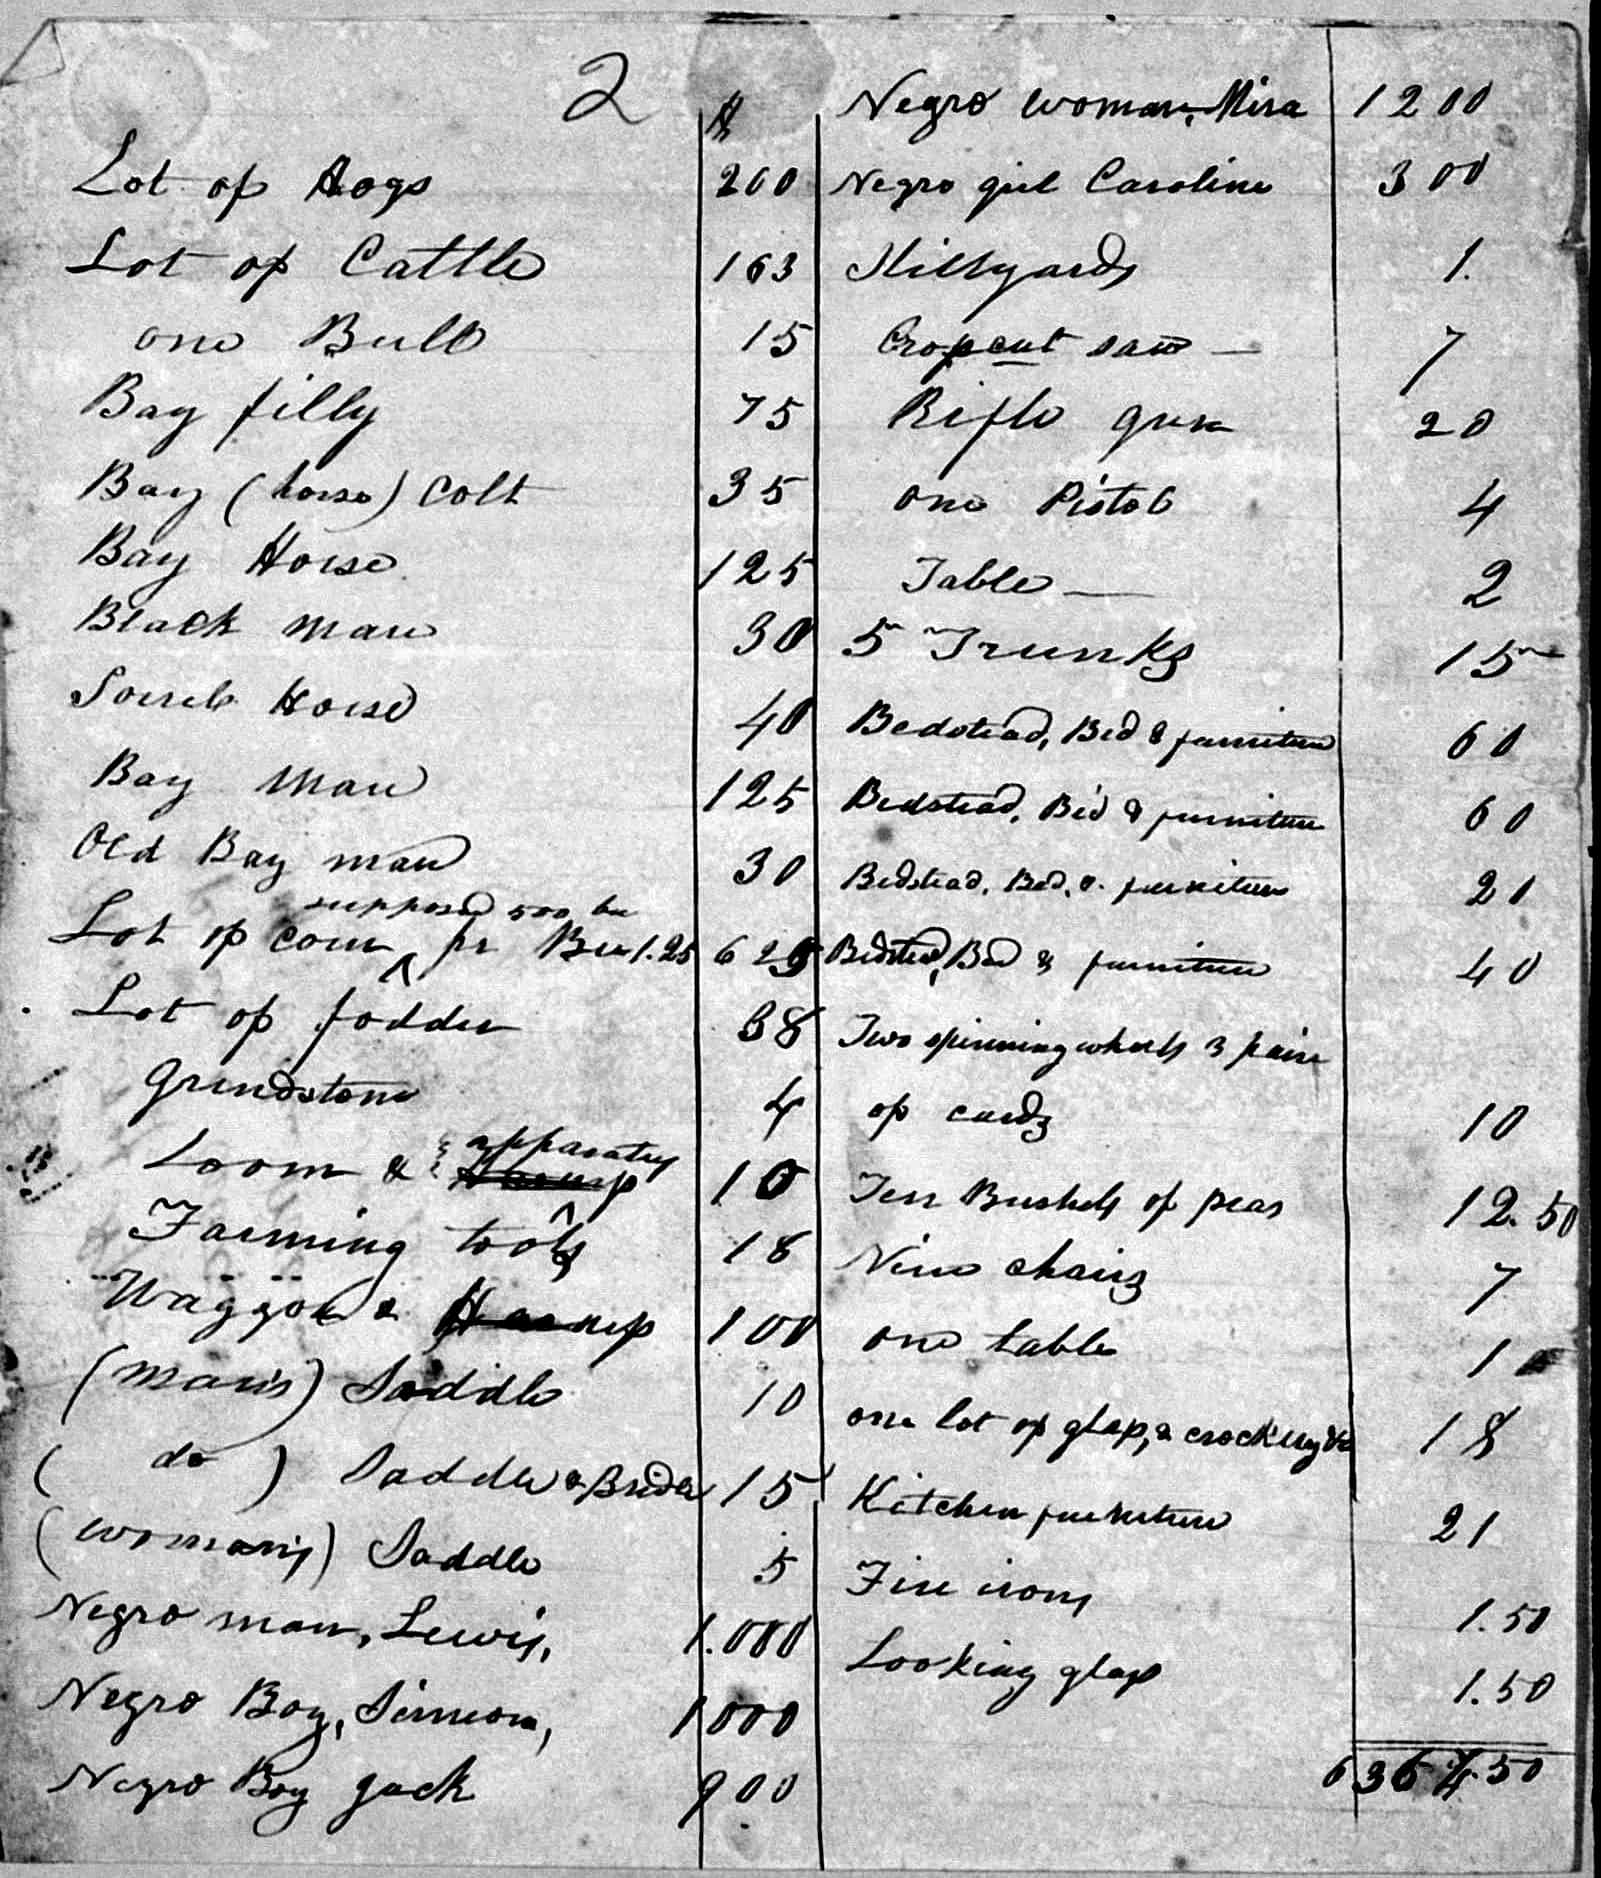 2
$
Lot of Hogs 200
Lot of Cattle 163
one Bull 15
Bay filly 75
Bay (horse) Colt 35
Bay Horse 125
Black Mare 30
Sorrel Horse 40
Bay Mare 125
Old Bay mare 30
supposed 500 bu
Lot of corn ^ pr Bu 1.25 625
Lot of fodder 38
Grindstone 4
apparatus
Loom & 10
Farming tools 18
Waggon & Harness 100
(Man's) Saddle 10
( do ) Saddle & Bridle 15
(woman's) Saddle 5
Negro man, Lewis, 1.000
Negro Boy, Simeon, 1000
Negro Boy Jack 900
Negro woman, Mira 1200
Negro girl Caroline 300
Stillyards 1.
Crosscut saw — 7
Rifle gun 20
one Pistol 4
Table — 2
5 Trunks 15
Bedstead, Bed & furniture 60
Bedstead, Bed & furniture 60
Bedstead, Bed, & furniture 20
Bedstead, Bed & furniture 40
Two spinning wheels 3 pairs
of cards 10
Ten Bushels of peas 12.50
Nine chairs 7
one table 1
one lot of glass, & crockery &c 18
Kitchen furniture 21
Fire irons 1.50
Looking glass 1.50
6367.50